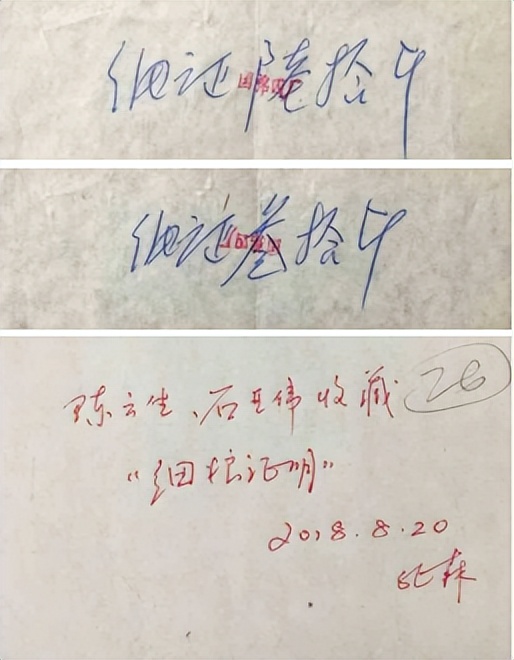 细证陆拾斤
细证叁拾斤
26
陈云生、石亚伟收藏
“细粮证明”
2018.8.20